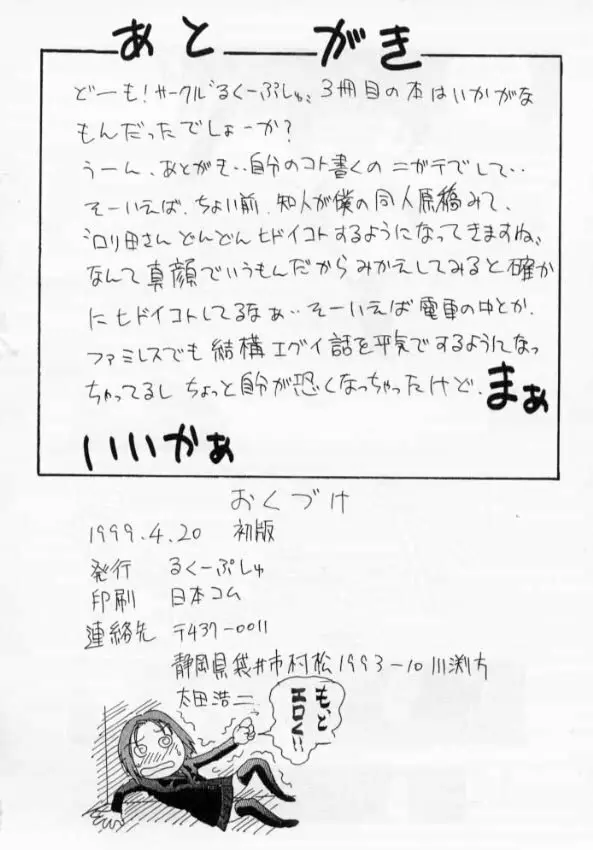 あとがき
どーも!サークルるくーぷしゅ、3冊目の本はいかがな
もんだったでしょーか?
うーん、あとがき‥自分のコト書くのニガテでして‥
そーいえば、ちょい前、知人が僕の同人原稿みて、
シロリ田さんどんどんヒドイコトするようになってきますね、
なんて真顔でいうもんだからみかえしてみると確か
にヒドイコトしてるなぁ‥そーいえば電車の中とか、
ファミレスでも結構エグイ話を平気でするようになっ
ちゃってるしちょっと自分が恐くなっちゃったけど、まぁ
いいかぁ
おくづけ
1999.4.20 初版
発行 るくーぷしゅ
印刷 日本コム
連絡先 〒437-0011
静岡県袋井市村松1993-10川渕方
太田浩二
もっと
エロく!!